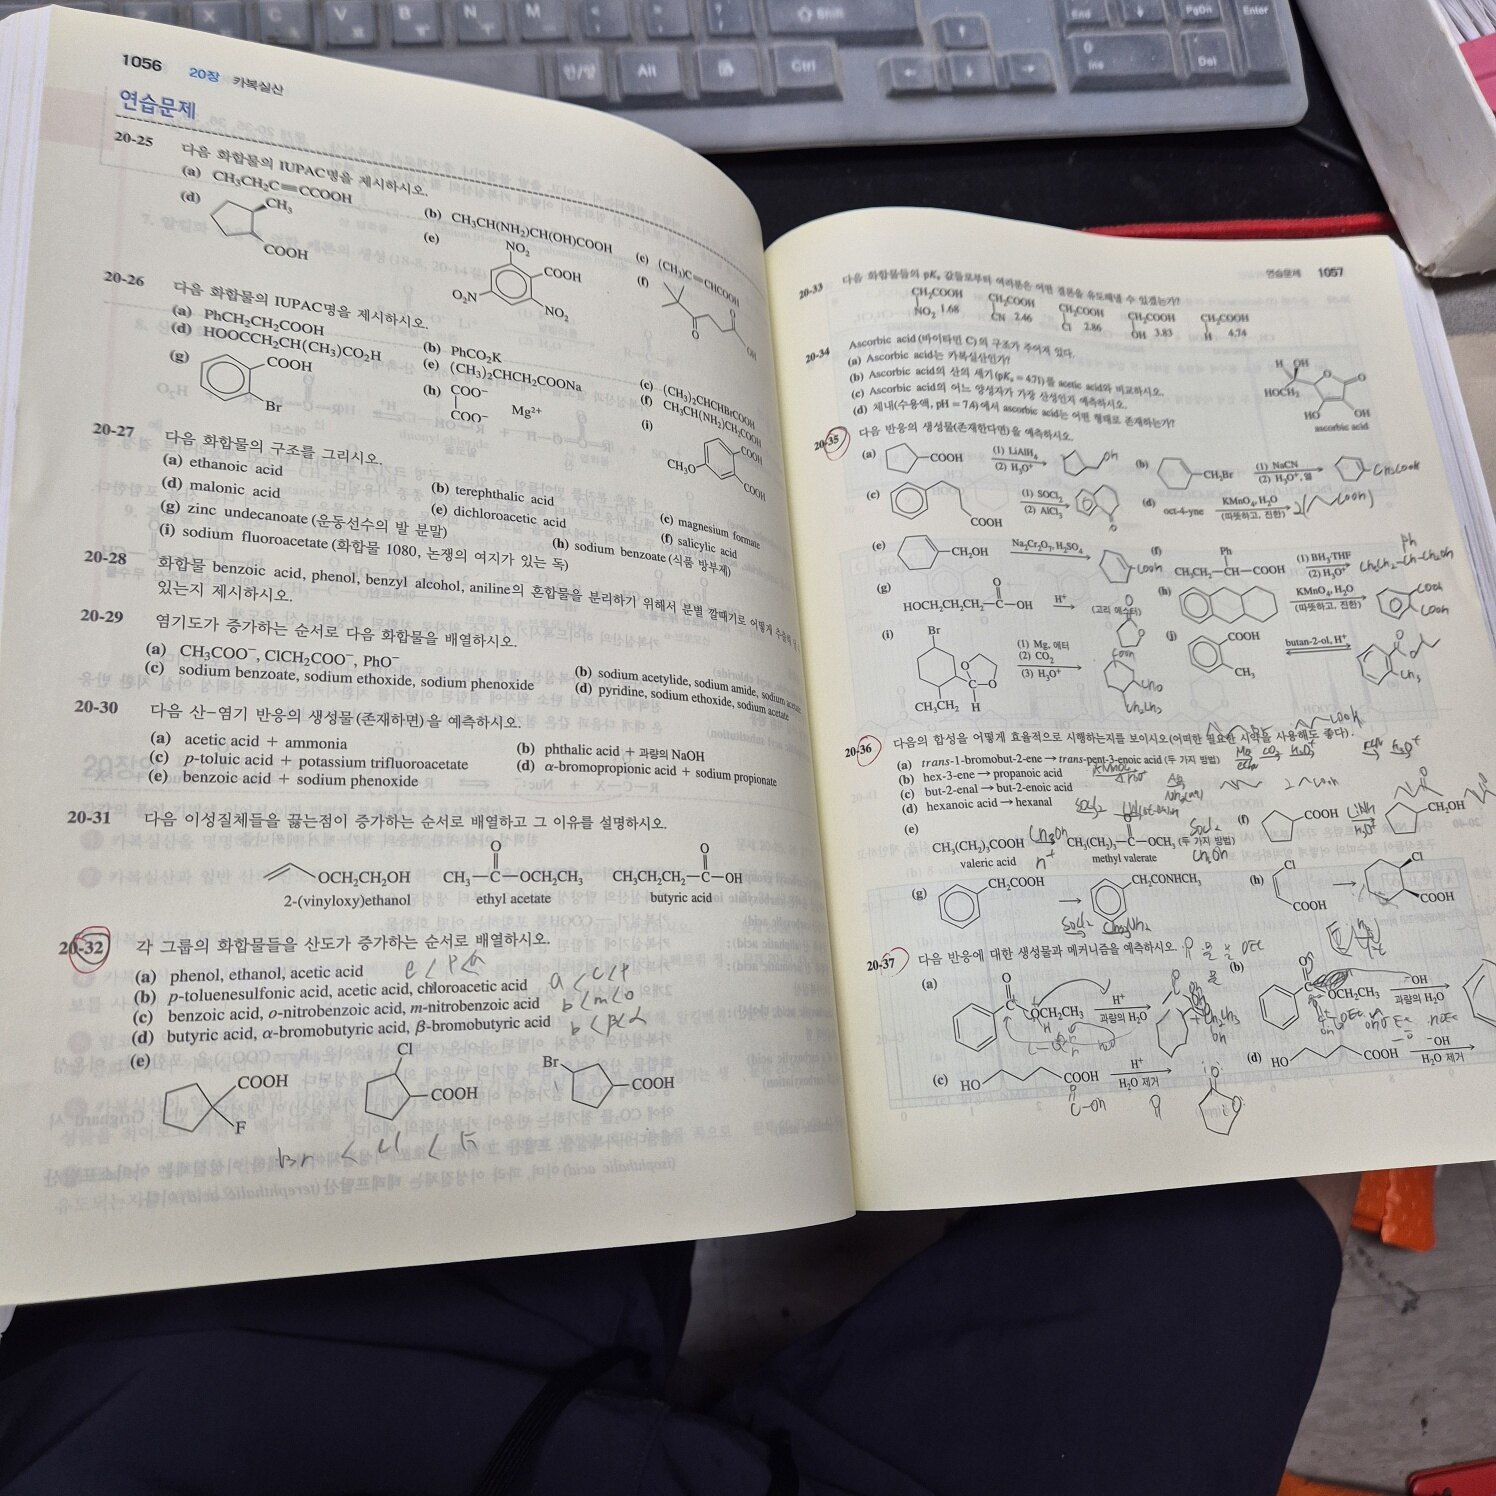 1056 20장 카복실산
연습문제
20-25 다음 화합물의 IUPAC명을 제시하시오.
(a) CH₃CH₂C≡CCOOH
(b) CH₃CH(NH₂)CH(OH)COOH
(c) (CH₃)₂C=CHCOOH
(d) CH₃ COOH
(e) NO₂ COOH O₂N NO₂
(f)
20-26 다음 화합물의 IUPAC명을 제시하시오.
(a) PhCH₂CH₂COOH
(b) PhCO₂K
(c) (CH₃)₂CHCHBrCOOH
(d) HOOCCH₂CH(CH₃)CO₂H
(e) (CH₃)₂CHCH₂COONa
(f) CH₃CH(NH₂)CH₂COOH
(g) COOH Br
(h) COO⁻ COO⁻ Mg²⁺
(i) CH₃O COOH COOH
20-27 다음 화합물의 구조를 그리시오.
(a) ethanoic acid
(b) terephthalic acid
(c) magnesium formate
(d) malonic acid
(e) dichloroacetic acid
(f) salicylic acid
(g) zinc undecanoate (운동선수의 발 분말)
(h) sodium benzoate (식품 방부제)
(i) sodium fluoroacetate (화합물 1080, 논쟁의 여지가 있는 독)
20-28 화합물 benzoic acid, phenol, benzyl alcohol, aniline의 혼합물을 분리하기 위해서 분별 깔때기로 어떻게
있는지 제시하시오.
20-29 염기도가 증가하는 순서로 다음 화합물을 배열하시오.
(a) CH₃COO⁻, ClCH₂COO⁻, PhO⁻
(b) sodium acetylide, sodium amide, sodium acetate
(c) sodium benzoate, sodium ethoxide, sodium phenoxide
(d) pyridine, sodium ethoxide, sodium acetate
20-30 다음 산-염기 반응의 생성물(존재하면)을 예측하시오.
(a) acetic acid + ammonia
(b) phthalic acid + 과량의 NaOH
(c) p-toluic acid + potassium trifluoroacetate
(d) α-bromopropionic acid + sodium propionate
(e) benzoic acid + sodium phenoxide
20-31 다음 이성질체들을 끓는점이 증가하는 순서로 배열하고 그 이유를 설명하시오.
OCH₂CH₂OH CH₃—C—OCH₂CH₃ CH₃CH₂CH₂—C—OH
2-(vinyloxy)ethanol ethyl acetate butyric acid
20-32 각 그룹의 화합물들을 산도가 증가하는 순서로 배열하시오.
(a) phenol, ethanol, acetic acid e < p < a
(b) p-toluenesulfonic acid, acetic acid, chloroacetic acid a < c < p
(c) benzoic acid, o-nitrobenzoic acid, m-nitrobenzoic acid b < m < o
(d) butyric acid, α-bromobutyric acid, β-bromobutyric acid b < β < α
(e) COOH F Cl COOH Br COOH
Br < Cl < F
연습문제 1057
20-33 다음 화합물들의 pKₐ 값들로부터 여러분은 어떤 결론을 유도해낼 수 있겠는가?
CH₂COOH CH₂COOH CH₂COOH CH₂COOH CH₂COOH
NO₂ 1.68 CN 2.46 Cl 2.86 OH 3.83 H 4.74
20-34 Ascorbic acid (바이타민 C)의 구조가 주어져 있다.
(a) Ascorbic acid는 카복실산인가?
(b) Ascorbic acid의 산의 세기(pKₐ = 4.71)를 acetic acid와 비교하시오.
(c) Ascorbic acid의 어느 양성자가 가장 산성인지 예측하시오.
(d) 체내(수용액, pH = 7.4)에서 ascorbic acid는 어떤 형태로 존재하는가?
H OH HOCH₂ O O HO OH
ascorbic acid
20-35 다음 반응의 생성물(존재한다면)을 예측하시오.
(a) COOH (1) LiAlH₄ (2) H₃O⁺ OH
(b) CH₂Br (1) NaCN (2) H₃O⁺, 열 CH₂COOH
(c) COOH (1) SOCl₂ (2) AlCl₃
(d) oct-4-yne KMnO₄, H₂O (따뜻하고, 진한) 2( COOH)
(e) CH₂OH Na₂Cr₂O₇, H₂SO₄ COOH
(f) Ph CH₃CH₂—CH—COOH (1) BH₃·THF (2) H₃O⁺ Ph CH₃CH₂-CH-CH₂OH
(g) HOCH₂CH₂CH₂—C—OH H⁺ (고리 에스터)
(h) KMnO₄, H₂O (따뜻하고, 진한) COOH COOH
(i) Br CH₃CH₂ H (1) Mg, 에터 (2) CO₂ (3) H₃O⁺ COOH CHO CH₂CH₃
(j) COOH CH₃ butan-2-ol, H⁺ CH₃
20-36 다음의 합성을 어떻게 효율적으로 시행하는지를 보이시오(어떠한 필요한 시약을 사용해도 좋다).
(a) trans-1-bromobut-2-ene → trans-pent-3-enoic acid (두 가지 방법)
(b) hex-3-ene → propanoic acid
(c) but-2-enal → but-2-enoic acid
(d) hexanoic acid → hexanal
(e) CH₃(CH₂)₃COOH CH₃OH H⁺ CH₃(CH₂)₃—C—OCH₃ (두 가지 방법) SOCl₂ CH₃OH
valeric acid methyl valerate
(f) COOH CH₂OH
(g) CH₂COOH → CH₂CONHCH₃ SOCl₂ CH₃NH₂
(h) Cl COOH → Cl COOH
20-37 다음 반응에 대한 생성물과 메커니즘을 예측하시오.
(a) C OCH₂CH₃ H⁺ 과량의 H₂O
(b) C OCH₂CH₃ ⁻OH 과량의 H₂O
(c) HO COOH H⁺ H₂O 제거
(d) HO COOH ⁻OH H₂O 제거